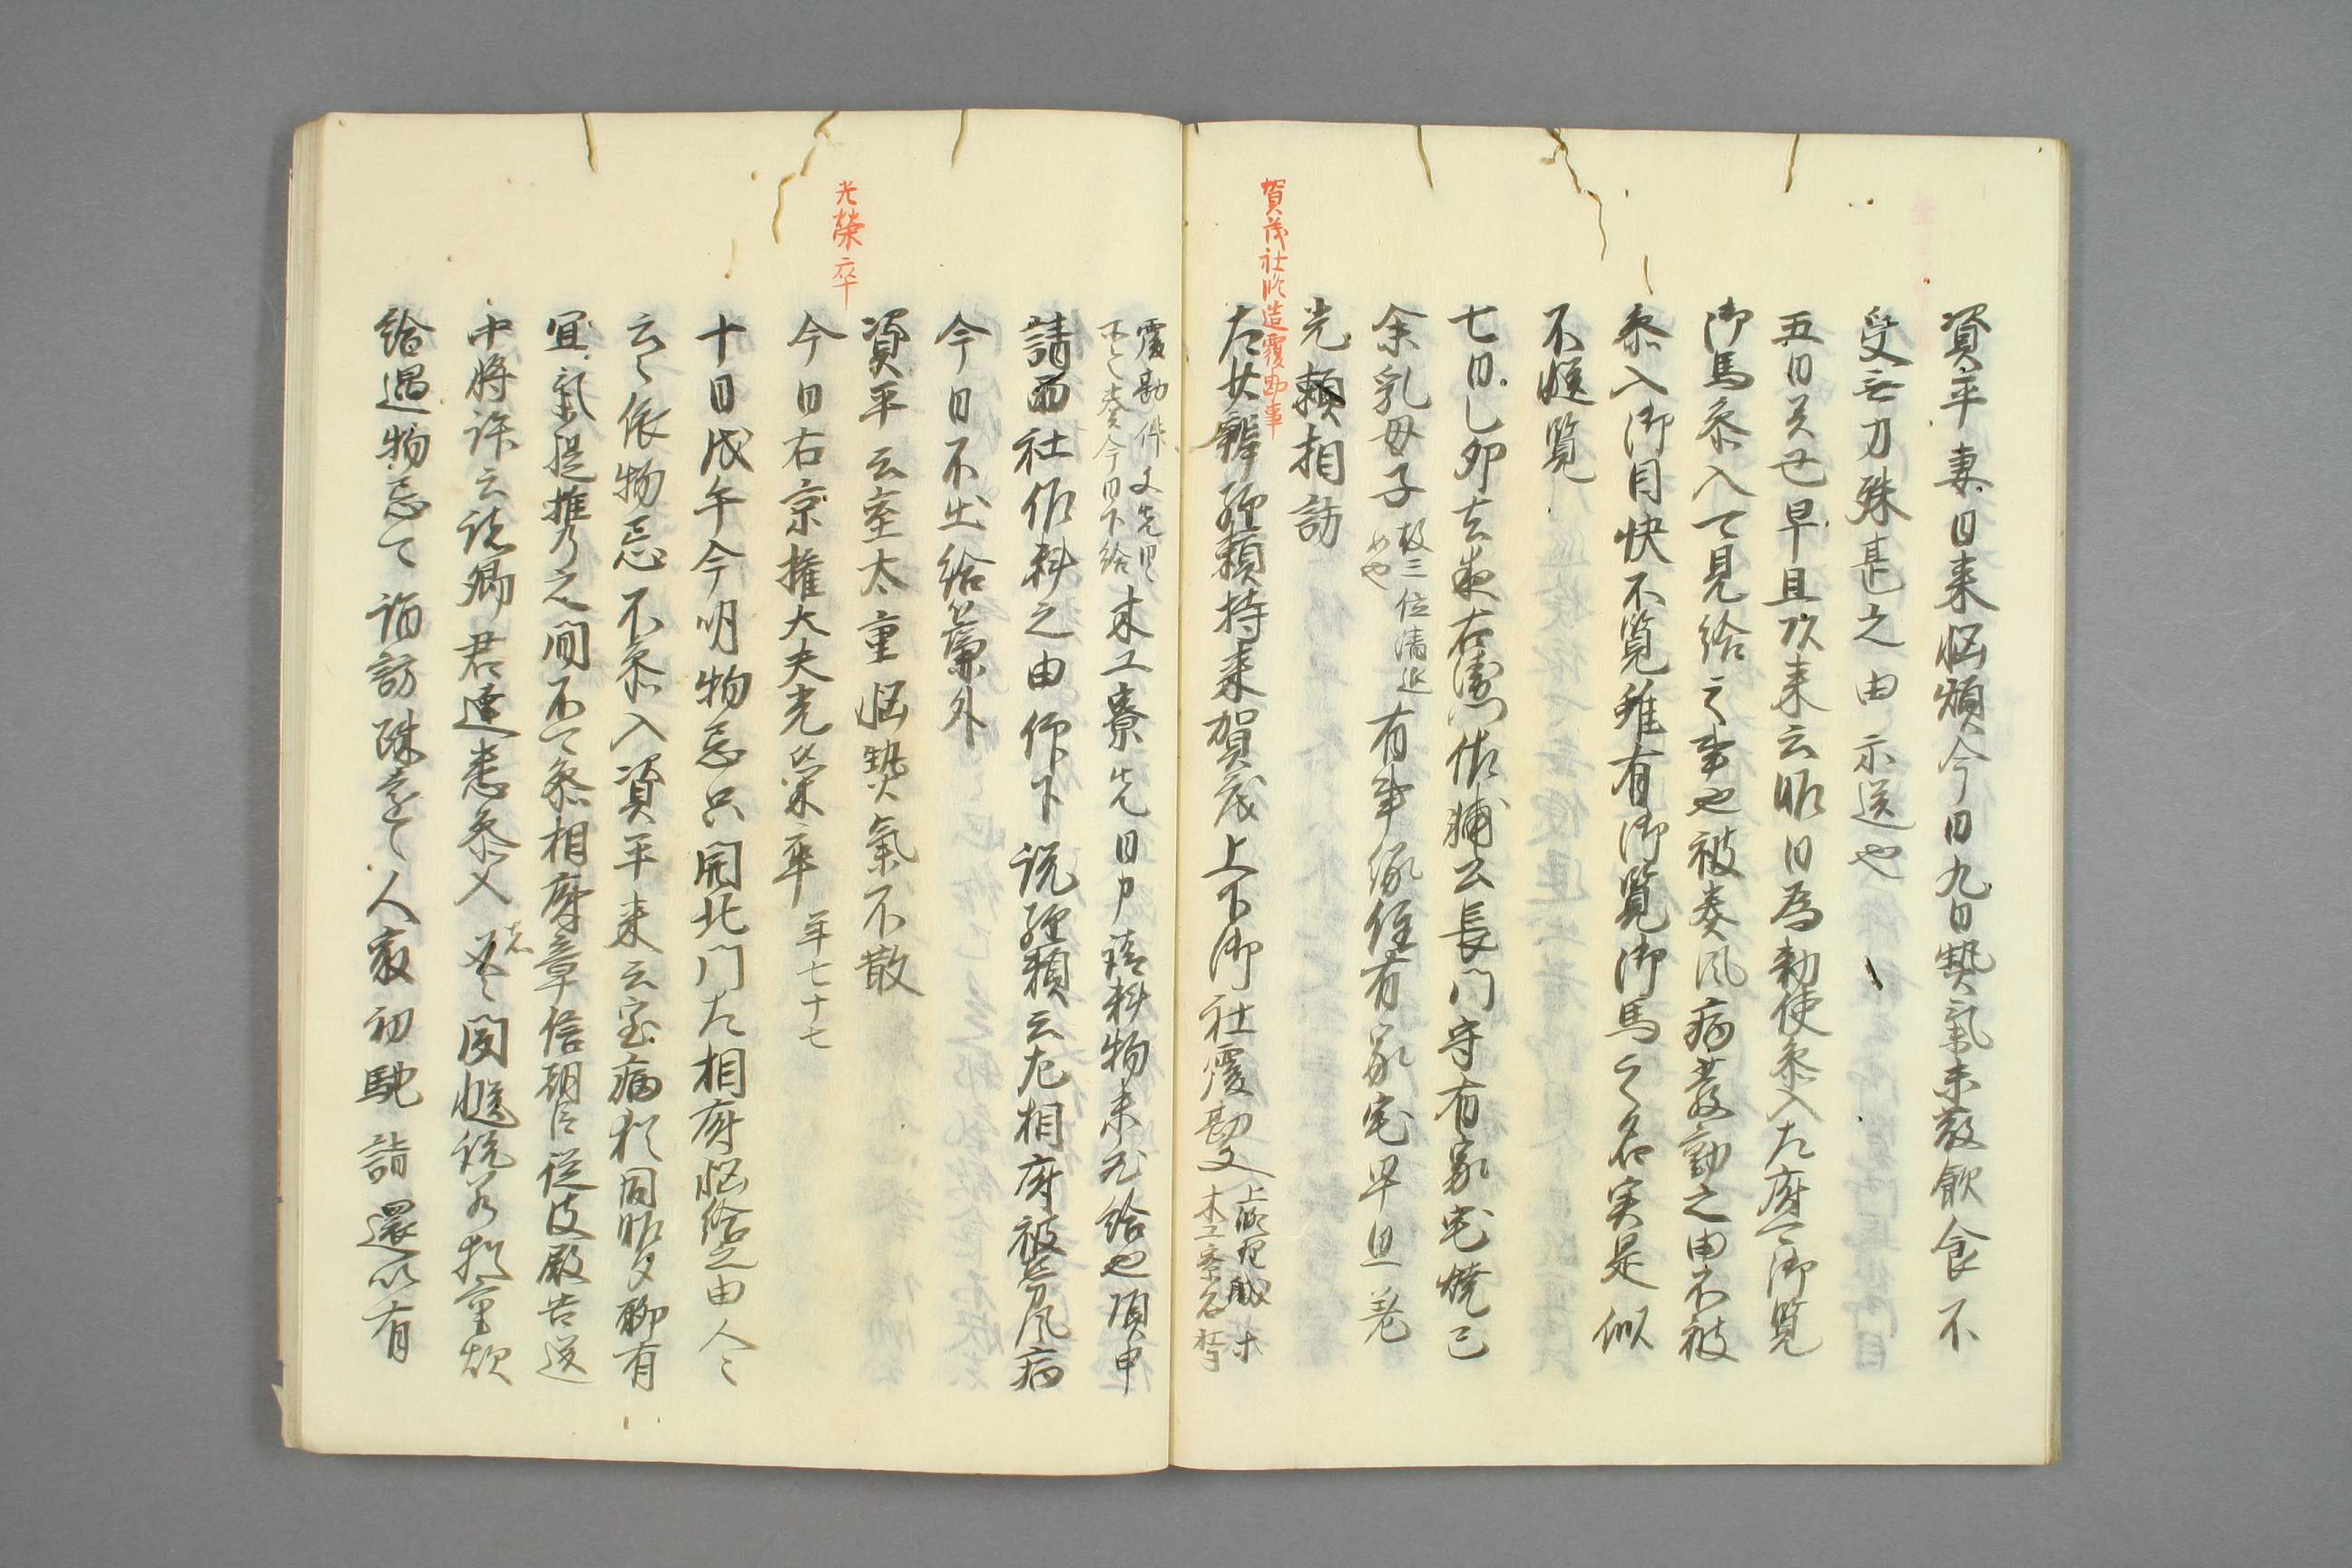 資平妻日来悩煩今日九日熱氣未散飲食不
受無力殊甚之由示送也
五日癸丑早旦頭来云昨日為勅使参入左府可御覧
御馬参入可見給之事也被奏風病發動之由不被
参入御目快不覧雖有御覧御馬之名実是似
不慥覧
七日乙卯去夜右衛門佐輔公長門守有家宅焼亡
余乳母子 故三位清延 めや 有事縁住有家宅早旦差
光頼相訪
賀茂社修造覆勘事
左少辨經頼持来賀茂上下御社覆勘文 上修理職 下 木工寮
覆勘件文先 奏今日下給 木工寮先日申請料物未充給也須申
請両社作料之由仰下說經頼云左相府被労風病
今日不出給簾外
資平云室太重悩熱氣不散
光榮卒
今日右京権大夫光榮卒 年七十七
十日戊午今明物忌只開北門左相府悩給之由人〻
云〻依物忌不参入資平来云室病猶同昨夕聊有
宜氣從推乃之間不可参相府章信朝臣従彼殿告送
中將許云説卿君達悉参入 者 聞慥説乃猶重煩
給過物忌可詣訪殊達可人家初馳詣還以有